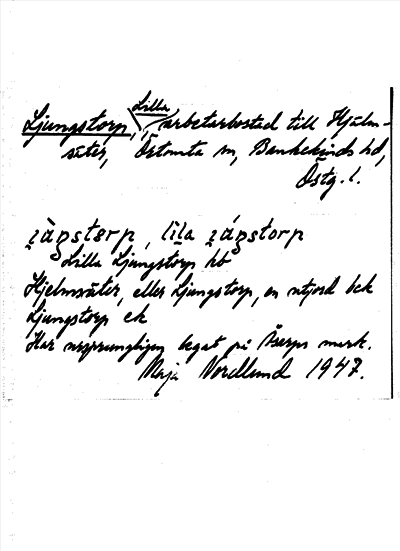 Ljungstorp, Lilla, arbetarbostad till Hjälm-
säter, Örtomta sn, Bankekinds hd,
Östg. l.
lila
Lilla Ljungstorp hb
Hjelmsäter, eller Ljungstorp, en utjord bek
Ljungstorp ek
Har ursprungligen legat på Åserps mark.
Maja Nordlund 1947.